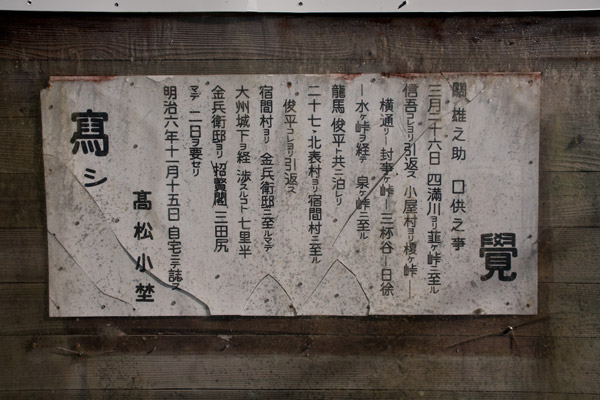 覺
關雄之助 口供之事
三月二十六日 四満川ヨリ韮ヶ峠ニ至ル
信吾コレヨリ引返ス 小屋村ヨリ榎ヶ峠―
横通リ―封事ヶ峠―三杯谷―日除
―水ヶ峠ヲ経テ 泉ヶ峠ニ至ル
龍馬 俊平ト共ニ泊レリ
二十七、北表村ヨリ宿間村ニ至ル
俊平コレヨリ引返ス
宿間村ヨリ 金兵衛邸ニ至ルマデ
大州城下ヲ経 渉スルコト七里半
金兵衛邸ヨリ招賢閣 三田尻
マデ 二日ヲ要セリ
明治六年十一月十五日 自宅ニテ誌ス
髙松小埜
寫シ